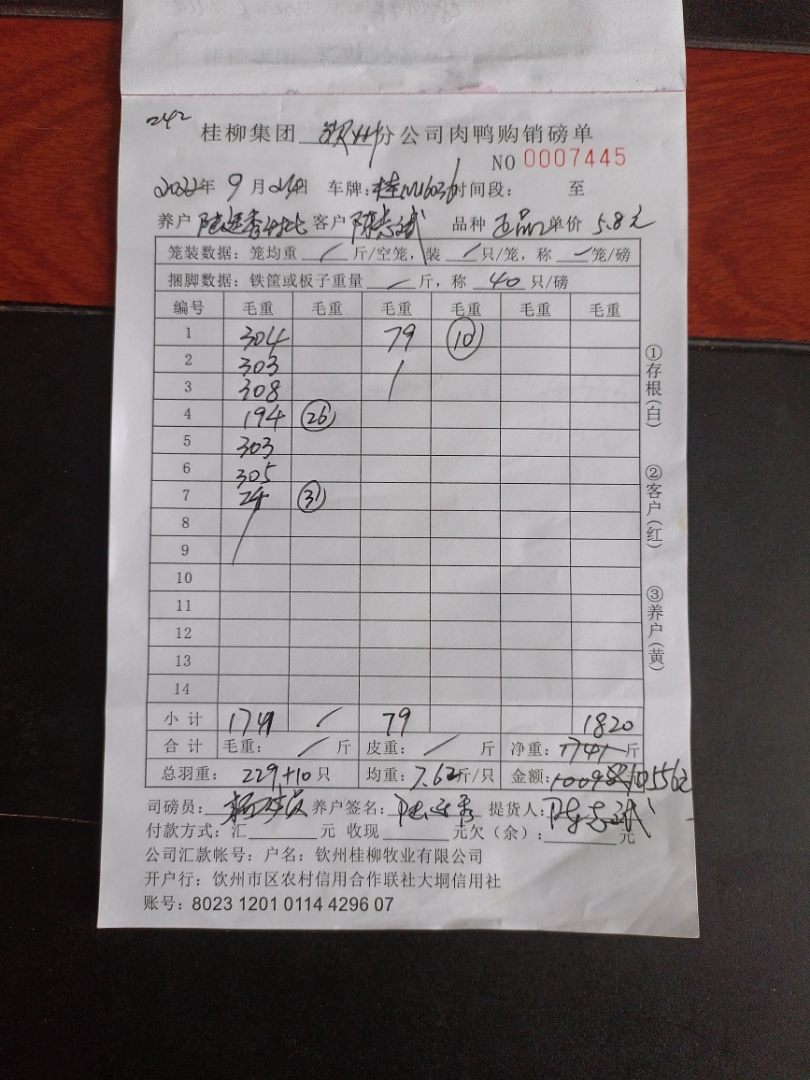 242
桂柳集团 钦州 分公司肉鸭购销磅单
NO 0007445
2022年 9 月 日 车牌: 桂 时间段: 至
养户 陆连秀 客户 陈志斌 品种 正品 单价 5.8元
笼装数据: 笼均重 / 斤/空笼, 装 / 只/笼, 称 / 笼/磅
捆脚数据: 铁筐或板子重量 / 斤, 称 40 只/磅
编号 毛重 毛重 毛重 毛重 毛重 毛重
1 304 79 10
2 303 /
3 308
4 194 26
5 303
6 305
7 24 3
8 /
9
10
11
12
13
14
小计 1741 / 79 1820
合计 毛重: / 斤 皮重: / 斤 净重: 1741 斤
总羽重: 229+10 只 均重: 7.62斤/只 金额: 10098 10556元
司磅员: 养户签名: 陆连秀 提货人: 陈志斌
付款方式: 汇 元 收现 元欠(余): 元
公司汇款帐号: 户名: 钦州桂柳牧业有限公司
开户行: 饮州市区农村信用合作联社大垌信用社
账号: 8023 1201 0114 4296 07
①存根(白)
②客户(红)
③养户(黄)